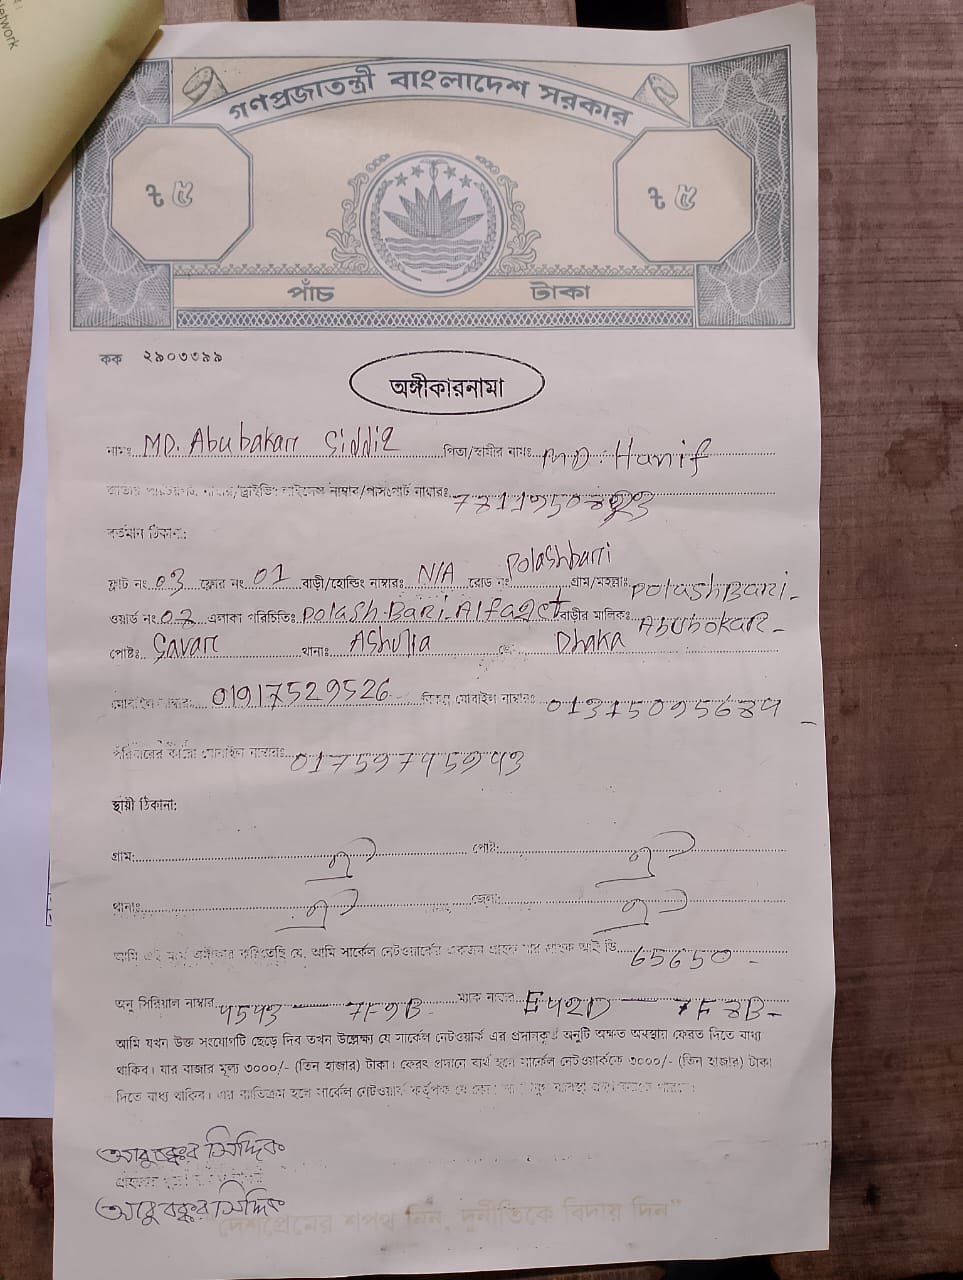 Network
গণপ্রজাতন্ত্রী বাংলাদেশ সরকার
৳ ৫ ৳ ৫
পাঁচ টাকা
কক ২৯০৩৩৯৯
অঙ্গীকারনামা
নামঃ MD. Abubakar Siddiq পিতা/স্বামীর নামঃ MD. Hanif
বর্তমান ঠিকানা:
ফ্লাট নং 03 ফ্লোর নং 01 বাড়ী/হোল্ডিং নাম্বারঃ N/A রোড নং Polashbari গ্রাম/মহল্লাঃ Polash Bari-
ওয়ার্ড নং 07 এলাকা পরিচিতিঃ Polash Bari বাড়ীর মালিকঃ Abubokar-
পোষ্টঃ Savar থানাঃ Ashulia Dhaka
মোবাইল নাম্বারঃ 01917529526 মোবাইল নাম্বারঃ
পরিবারের মোবাইল নাম্বারঃ
স্থায়ী ঠিকানা:
গ্রাম: পোষ্ট:
থানাঃ জেলা:
আমি এই মর্মে অঙ্গীকার করিতেছি যে, আমি সার্কেল নেটওয়ার্কের একজন গ্রাহক যার গ্রাহক আই ডি 65650-
অনু সিরিয়াল নাম্বার 4543 — 7F9B ম্যাক নাম্বার E42D — 7F8B-
আমি যখন উক্ত সংযোগটি ছেড়ে দিব তখন উল্লেক্ষ্য যে সার্কেল নেটওয়ার্ক এর প্রদানকৃত অনুটি অক্ষত অবস্থায় ফেরত দিতে বাধ্য
থাকিব। যার বাজার মূল্য ৩০০০/- (তিন হাজার) টাকা। ফেরৎ প্রদানে ব্যর্থ হলে সার্কেল নেটওয়ার্ককে ৩০০০/- (তিন হাজার) টাকা
দিতে বাধ্য থাকিব। এর ব্যতিক্রম হলে সার্কেল নেটওয়ার্ক কর্তৃপক্ষ যে কোন
আবুবক্কর সিদ্দিক
আবু বক্কর সিদ্দিক
"দেশপ্রেমের শপথ নিন, দুর্নীতিকে বিদায় দিন"